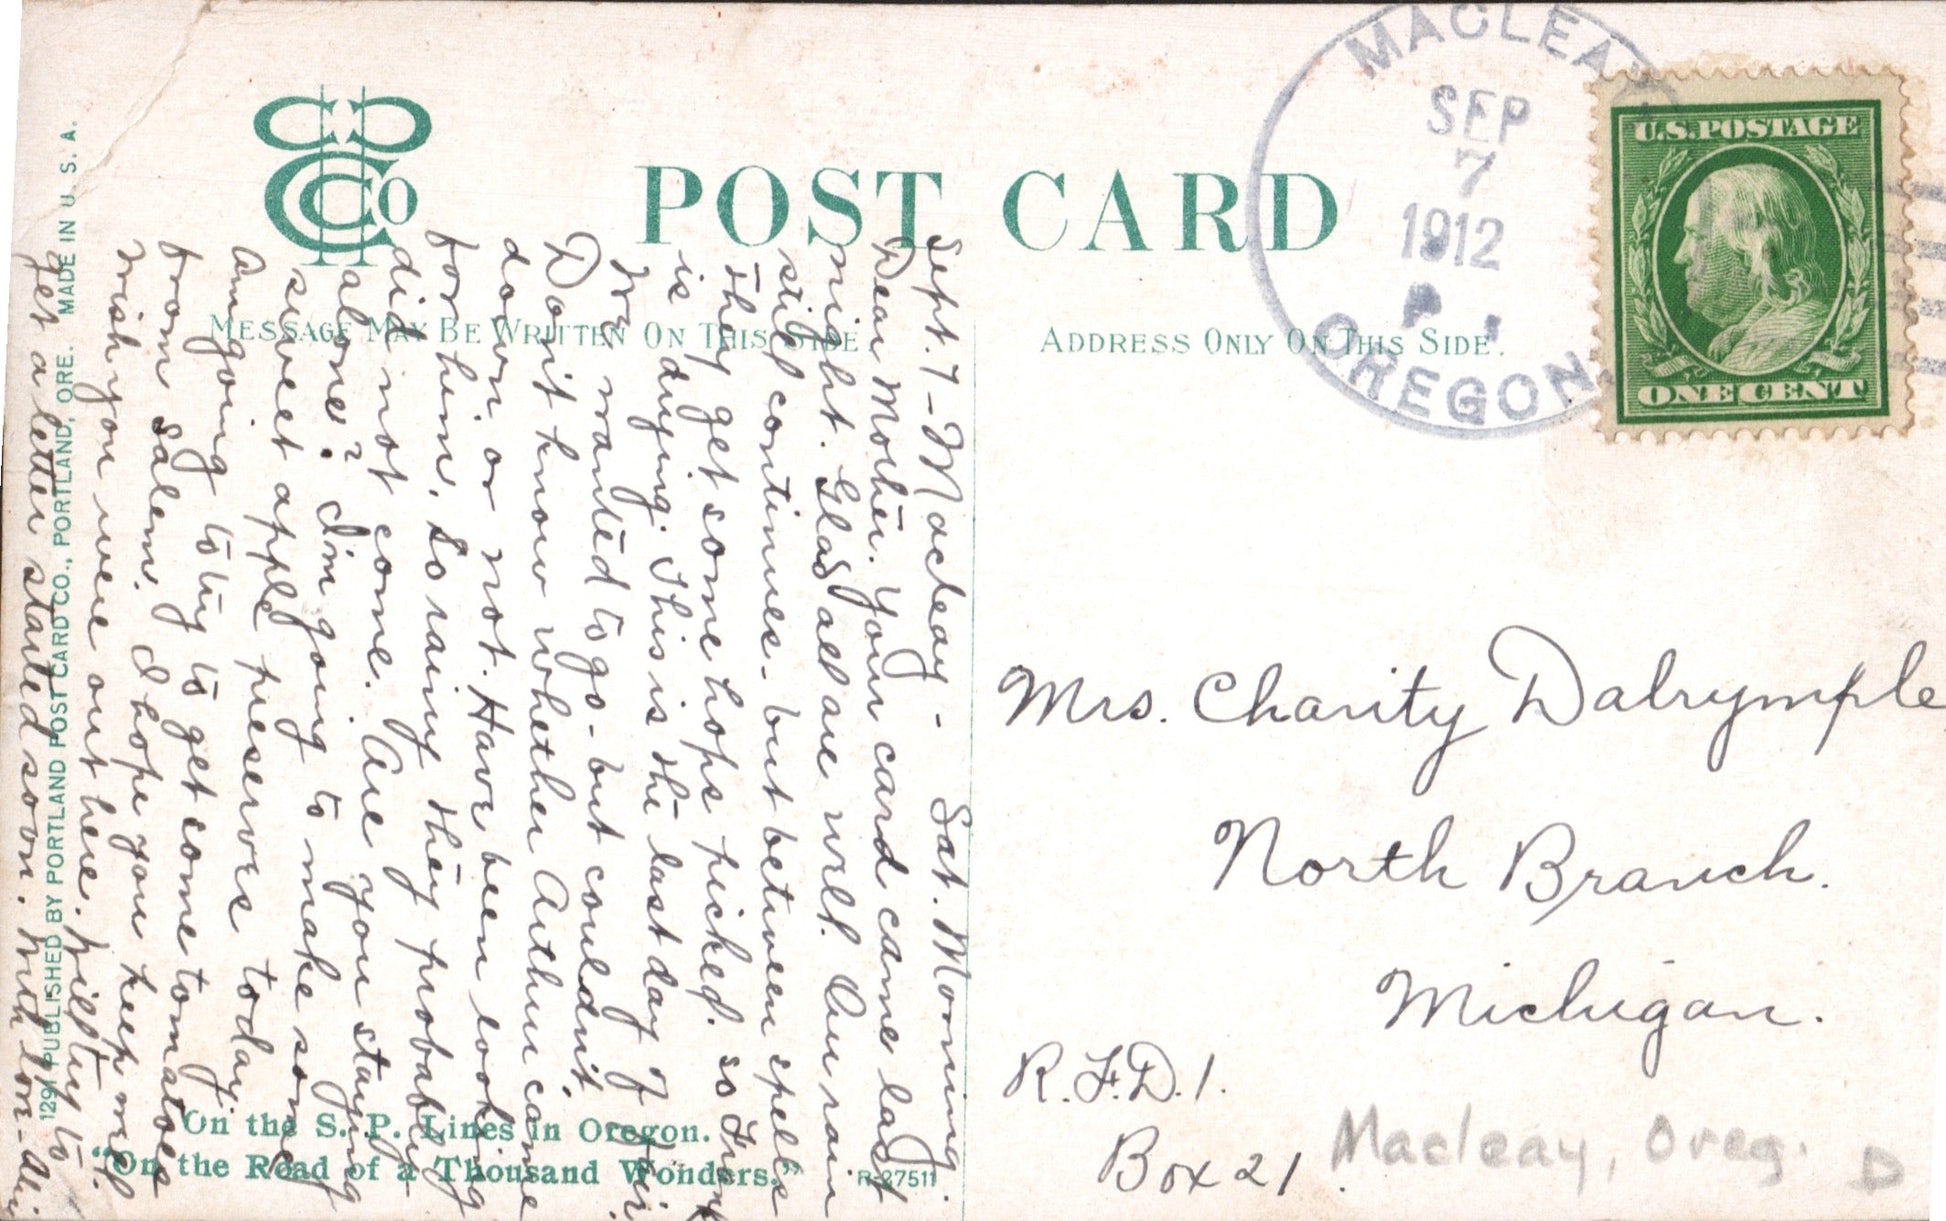 MACLEAY
SEP
7
1912
P
OREGON.
U.S. POSTAGE
ONE CENT
CO
POST CARD
MESSAGE MAY BE WRITTEN ON THIS SIDE
ADDRESS ONLY ON THIS SIDE.
Sept. 7 - Macleay - Sat. Morning.
Dear Mother. Your card came last
night. Glad all are well. Our rain
still continues - but between spells
they get some hops picked. so
is drying. This is the last day of Fair
We wanted to go - but couldnit
Donit know whether Arthur came
down or not. Have been looking
for him. So rainy they probably
did not come. Are you staying
alone? I'm going to make some
sweet apple preserves today
Am going to try to get some tomatoes
from Salem. I hope you keep well
wish you were out here. will try to
get a letter started soon. Much love -
Mrs. Charity Dalrymple
North Branch.
Michigan.
R.F.D. 1.
Box 21.
Macleay, Oreg.
D
On the S. P. Lines in Oregon.
"On the Road of a Thousand Wonders."
R-27511
1291 PUBLISHED BY PORTLAND POST CARD CO., PORTLAND, ORE. MADE IN U. S. A.